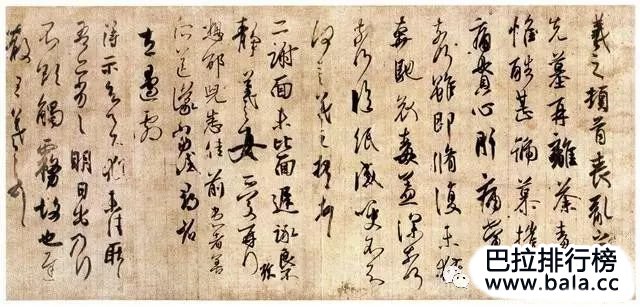 羲之頓首喪亂之
先墓再離荼毒
惟酷甚號慕摧
痛貫心肝痛當
奈何雖即脩復未獲
奔馳哀毒益深奈何
奈何臨紙感哽不知
何言羲之頓首
二謝面未比面遲詠良不
靜羲之女愛再拜
想邵兒悉佳前患者善
所送議當試尋省
左邊劇
得示知足下猶未佳耿
吾亦劣劣明日出乃行
不欲觸霧故也遲
散王羲之頓首
巴拉排行榜
www.bala.cc